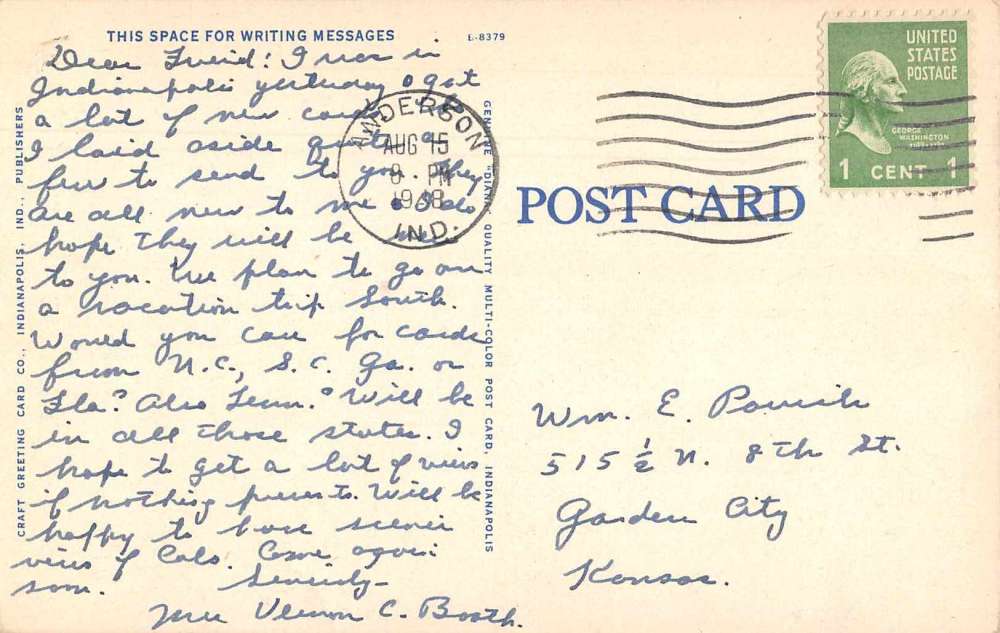 THIS SPACE FOR WRITING MESSAGES
E-8379
Dear Friend: I was in
Indianapolis yesterday & got
a lot of new cards
I laid aside quite a
few to send to you. They
are all new to me & I do
hope they will be new
to you. We plan to go on
a vacation trip South.
Would you care for cards
from N.C., S.C. Ga. or
Fla? Also Tenn.? Will be
in all those states. I
hope to get a lot of views
if nothing prevents. Will be
happy to have scenic
views of Colo. Come again
soon. Sincerely-
Mrs Vernon C. Booth.
CRAFT GREETING CARD CO., INDIANAPOLIS, IND., PUBLISHERS
GENUINE "DIANA" QUALITY MULTI-COLOR POST CARD, INDIANAPOLIS
ANDERSON
AUG 15
8 - PM
IND.
UNITED
STATES
POSTAGE
GEORGE
WASHINGTON
1 CENT 1
POST CARD
Wm. E. Parish
515 ½ N. 8th St.
Garden City
Kansas.